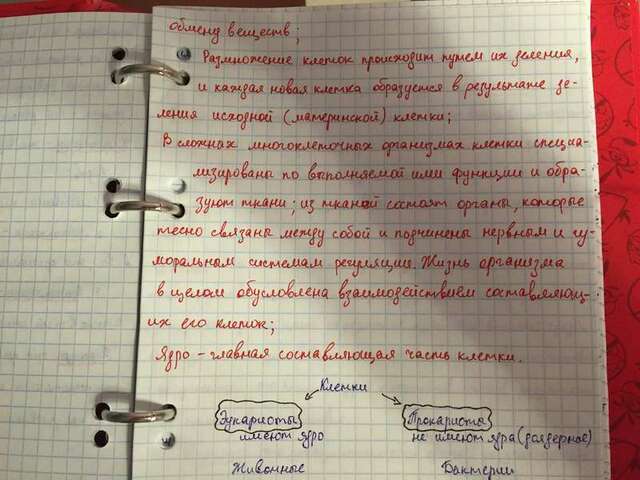 обмену веществ;
Размножение клеток происходит путем их деления,
и каждая новая клетка образуется в результате де-
ления исходной (материнской) клетки;
В сложных многоклеточных организмах клетки специа-
лизированы по выполняемой ими функции и обра-
зуют ткани; из тканей состоят органы, которые
тесно связаны между собой и подчинены нервным и гу-
моральным системам регуляции. Жизнь организма
в целом обусловлена взаимодействием составляющ-
их его клеток;
Ядро - главная составляющая часть клетки.
Клетки
Эукариоты Прокариоты
имеют ядро не имеют ядра
Животные Бактерии